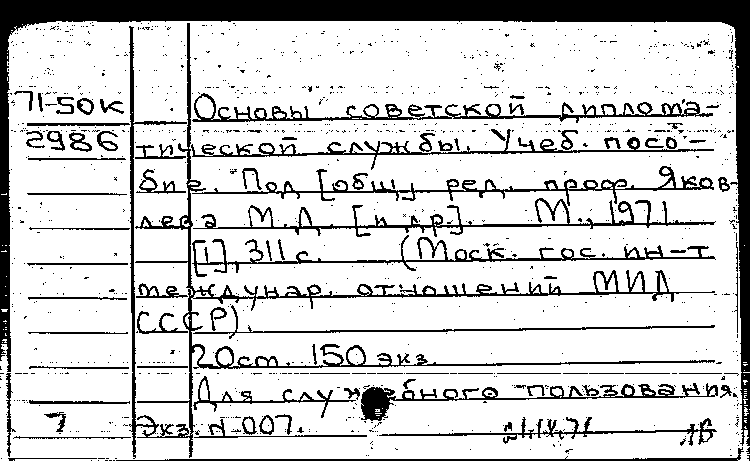 71-50к Основы советской диплома-
2986 тической службы. Учеб. посо-
бие. Под [общ] ред. проф. Яков-
лева М.Д. [и др]. М., 1971.
[1], 311 с. (Моск. гос. ин-т
междунар. отношений МИД
СССР).
20 см. 150 экз.
Для служебного пользования.
7 Экз. N-007. 21.IV.71